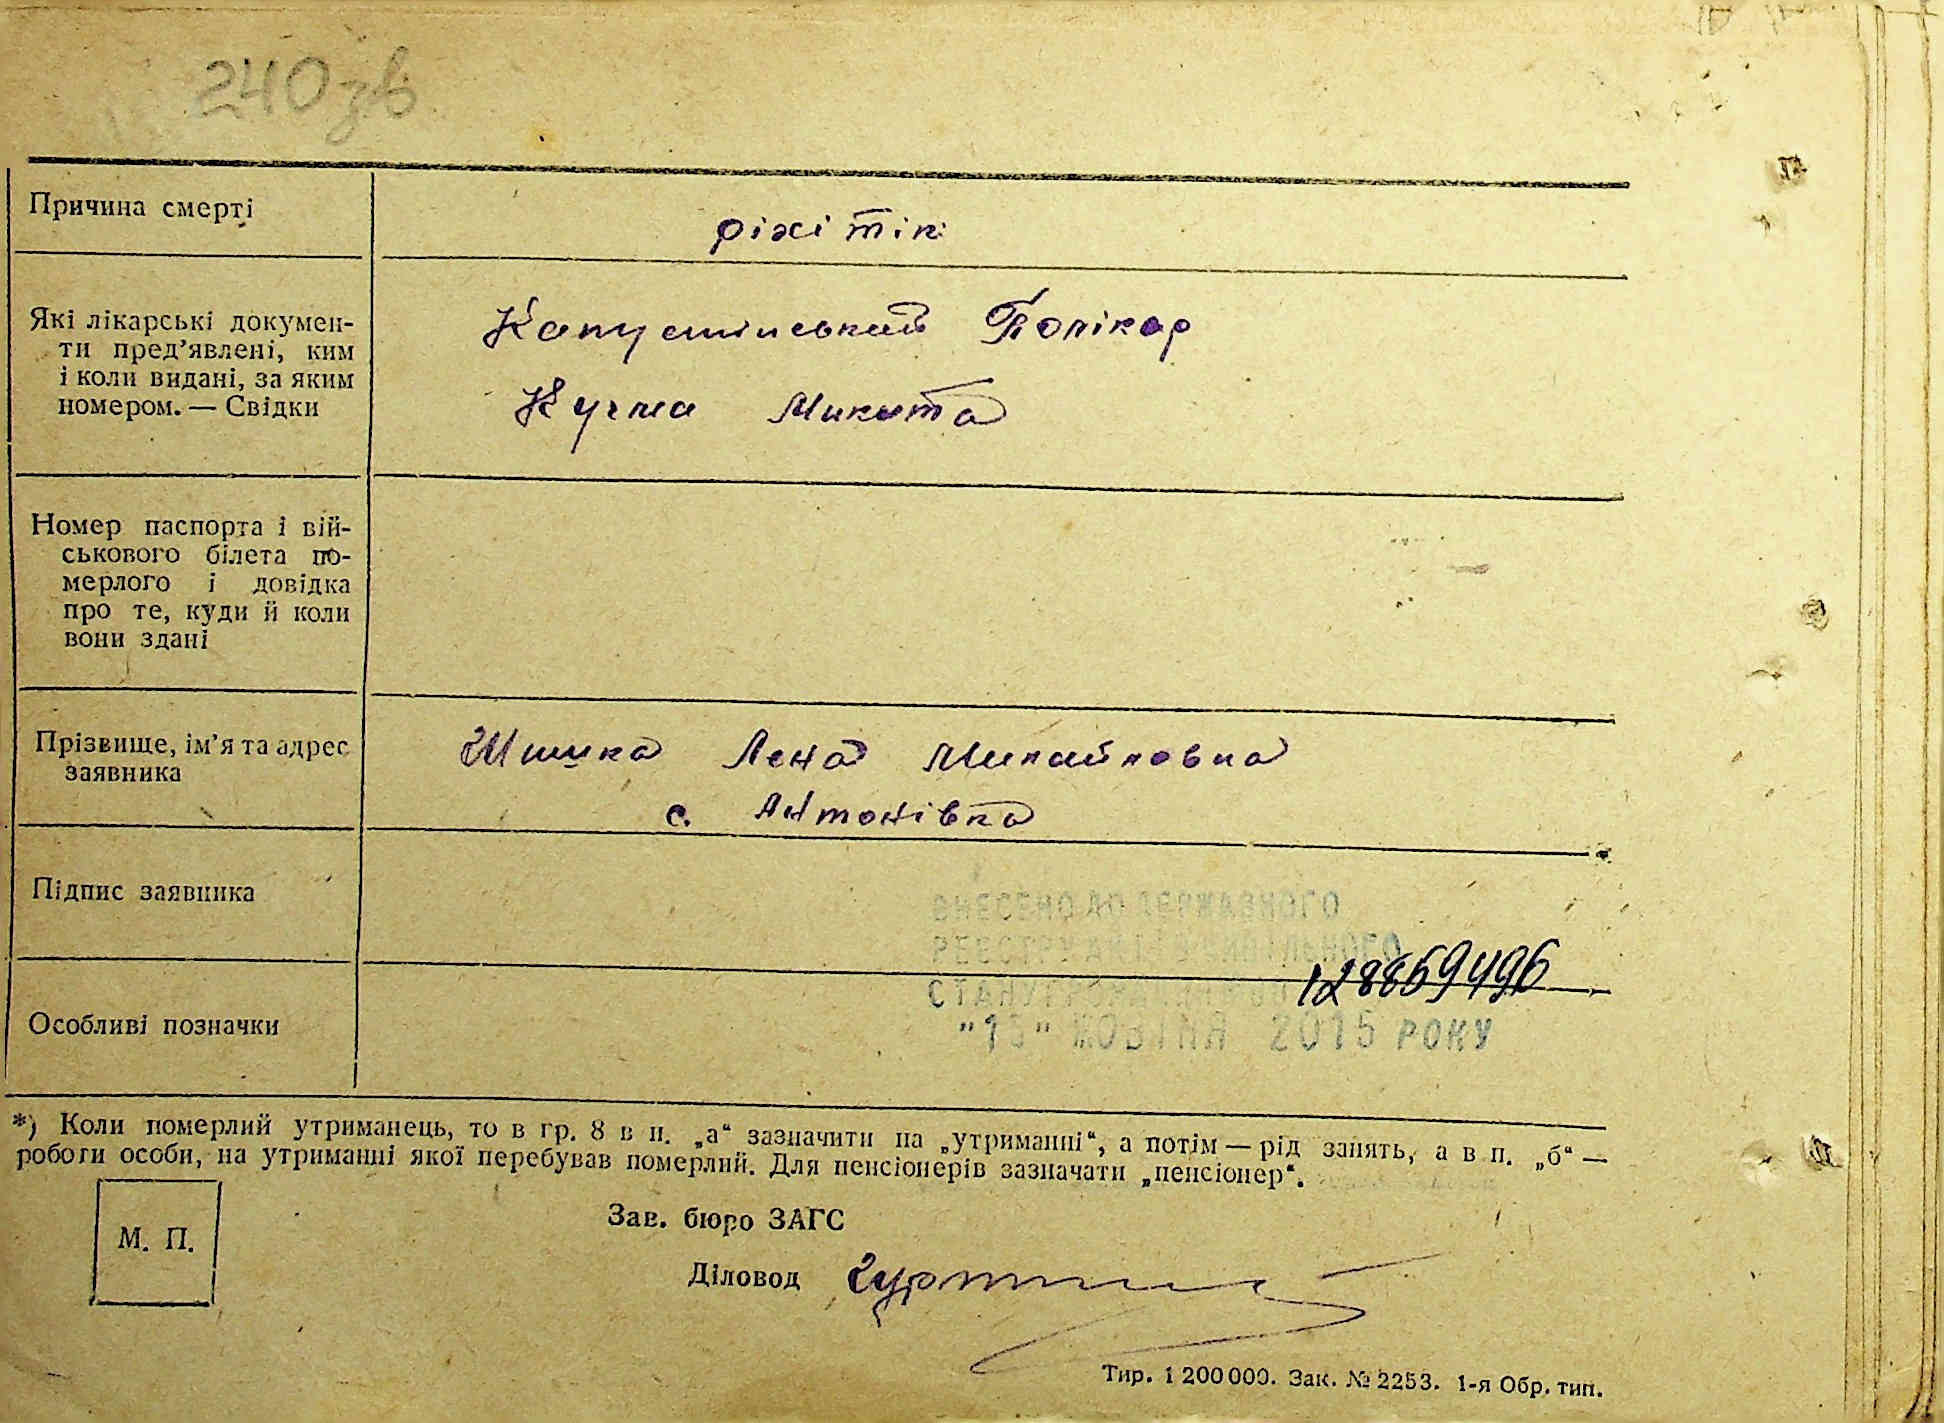 240зв
Причина смерті
ріхітік
Які лікарські докумен-
ти пред’явлені, ким
і коли видані, за яким
номером. — Свідки
Капустінський Полікар
Кучма Микита
Номер паспорта і вій-
ськового білета по-
мерлого і довідка
про те, куди й коли
вони здані
Прізвище, ім’я та адрес
заявника
Шишка Лена Михайловна
с. Антонівка
Підпис заявника
ВНЕСЕНО ДО ДЕРЖАВНОГО
РЕЄСТРУ АКТІВ ЦИВІЛЬНОГО
СТАНУ ГРОМАДЯН
128869496
Особливі позначки
"13" ЖОВТНЯ 2015 РОКУ
*) Коли померлий утриманець, то в гр. 8 в п. „а“ зазначити на „утриманні“, а потім — рід занять, а в п. „б“ —
роботи особи, на утриманні якої перебував померлий. Для пенсіонерів зазначати „пенсіонер“.
М. П.
Зав. бюро ЗАГС
Діловод
Тир. 1 200 000. Зак. № 2253. 1-я Обр. тип.